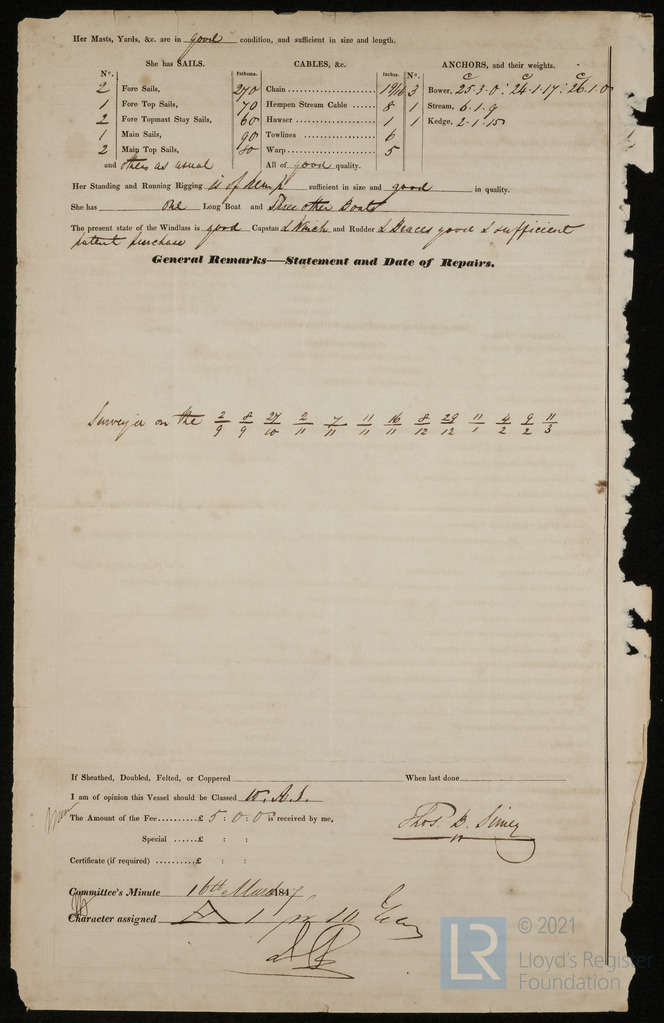 Her Masts, Yards, &c. are in good condition, and sufficient in size and length.
She has SAILS.
CABLES, &c.
ANCHORS, and their weights.
N°.
Fathoms.
Inches.
N°.
2 Fore Sails, 270 Chain 3 Bower, 25·3·0 : 24·1·17 : 26·1·0
1 Fore Top Sails, 70 Hempen Stream Cable 8 1 Stream, 6·1·9
2 Fore Topmast Stay Sails, 60 Hawser 1 Kedge, 2·1·15
1 Main Sails, 90 Towlines 6
2 Main Top Sails, Warp 5
and others as usual All of good quality.
Her Standing and Running Rigging is of Hemp sufficient in size and good in quality.
She has one Long Boat and Three other Boats
The present state of the Windlass is good Capstan & Winch and Rudder & Braces good & sufficient
patent purchase
General Remarks—Statement and Date of Repairs.
Surveyed on the 2/9 8/9 27/10 2/11 7/11 11/11 16/11 8/12 29/12 11/1 4/2 9/2 11/3
If Sheathed, Doubled, Felted, or Coppered When last done
I am of opinion this Vessel should be Classed 10. A. 1.
The Amount of the Fee £ 5 : 0 : 0 is received by me,
Thos. B. Simey
Special £ : :
Certificate (if required) £ : :
Committee's Minute 16th March 1847
Character assigned A 1
LR
© 2021
Lloyd's Register
Foundation